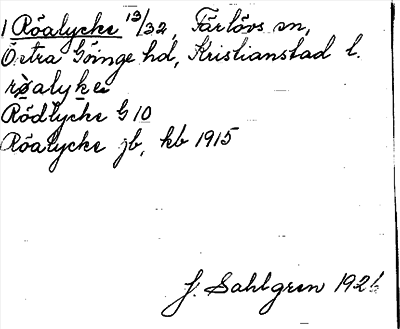 1 Röalycke 13/32, Färlövs sn,
Östra Göinge hd, Kristianstad l.
røalyke
Rödlycke G 10
Röalycke jb, kb 1915
J. Sahlgren 1926